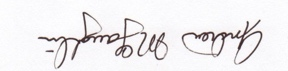 Andrea
McLaughlin